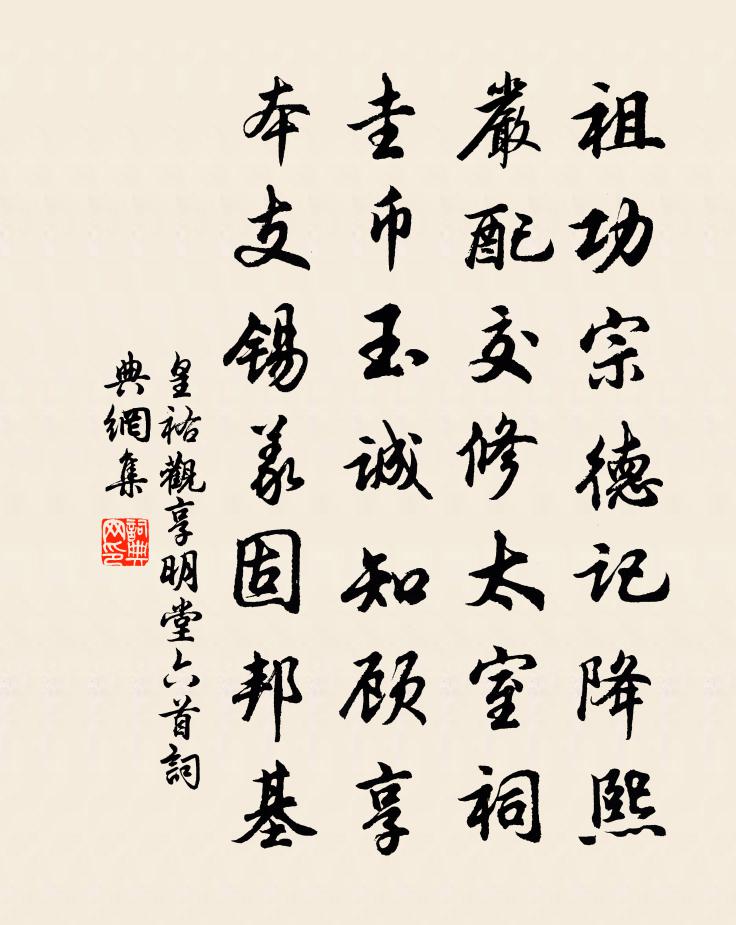 祖功宗德記降熙
嚴配交修太室祠
圭币玉誠知顾享
本支錫羨固邦基
皇祐觀享明堂六首詞
典網集
詞典
网印